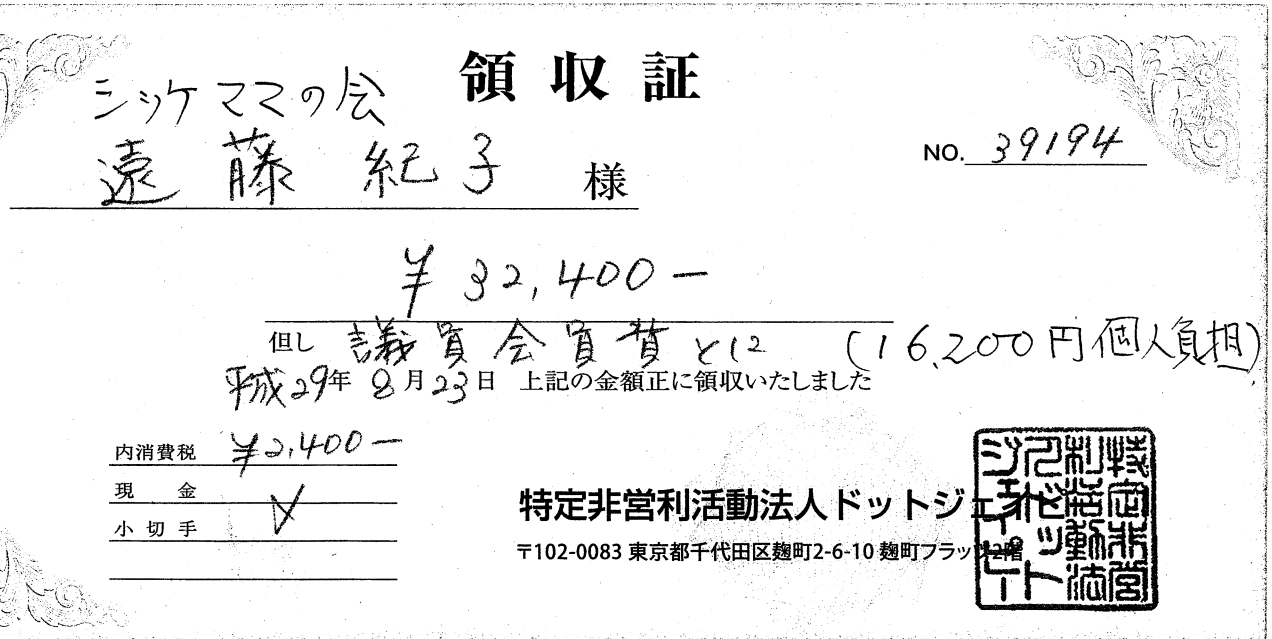 領収証
シッケママの会
遠藤 紀子 様
NO. 39194
¥32,400-
但し 議員会員費として (16,200円個人負担)
平成29年8月23日 上記の金額正に領収いたしました
内消費税 ¥2,400-
現金 ✓
小切手
特定非営利活動法人ドットジェ
〒102-0083 東京都千代田区麹町2-6-10 麹町フラッツ2階
特定非営
利活動法
人ドット
ジェイピー